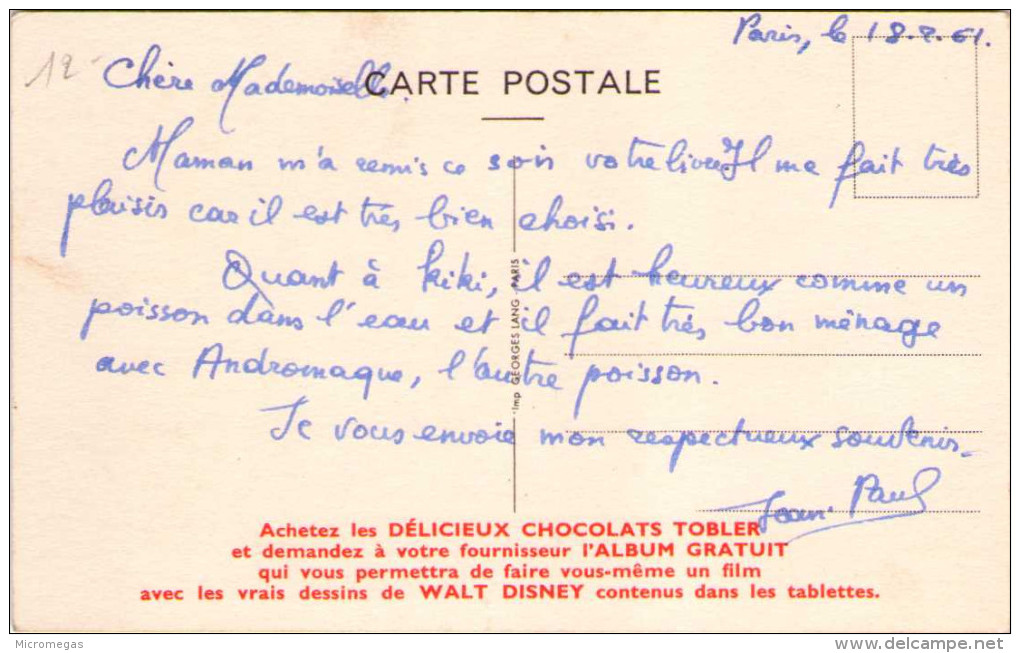 Paris, le 18.2.61.
12-
Chère Mademoiselle.
CARTE POSTALE
Maman m'a remis ce soir votre livre Il me fait très
plaisir car il est très bien choisi.
Quant à kiki, il est heureux comme un
poisson dans l'eau et il fait très bon ménage
avec Andromaque, l'autre poisson.
Je vous envoie mon respectueux souvenir.
Jean-Paul
Imp GEORGES LANG - PARIS
Achetez les DÉLICIEUX CHOCOLATS TOBLER
et demandez à votre fournisseur l'ALBUM GRATUIT
qui vous permettra de faire vous-même un film
avec les vrais dessins de WALT DISNEY contenus dans les tablettes.
Micromegas
delcampe.net